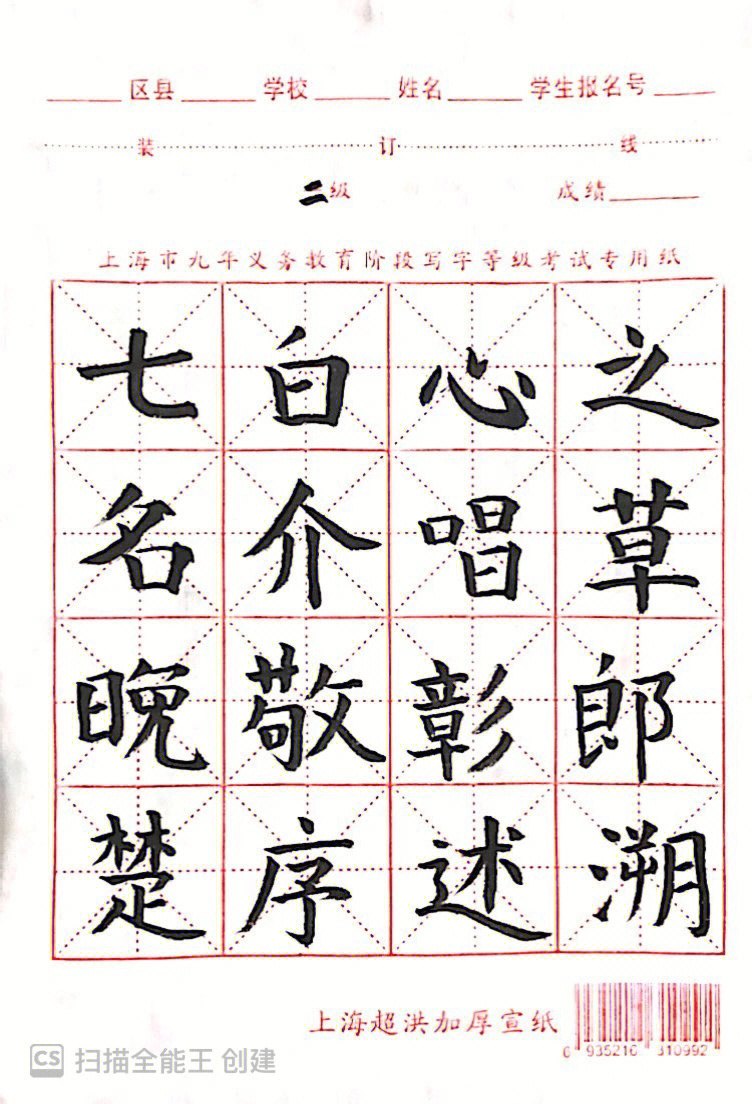 ______区县______学校______姓名______学生报名号_____
装 订 线
二级 成绩______
上海市九年义务教育阶段写字等级考试专用纸
七白心之
名介唱草
晚敬彰郎
楚序述溯
上海超洪加厚宣纸
0 935216 310992
CS 扫描全能王 创建